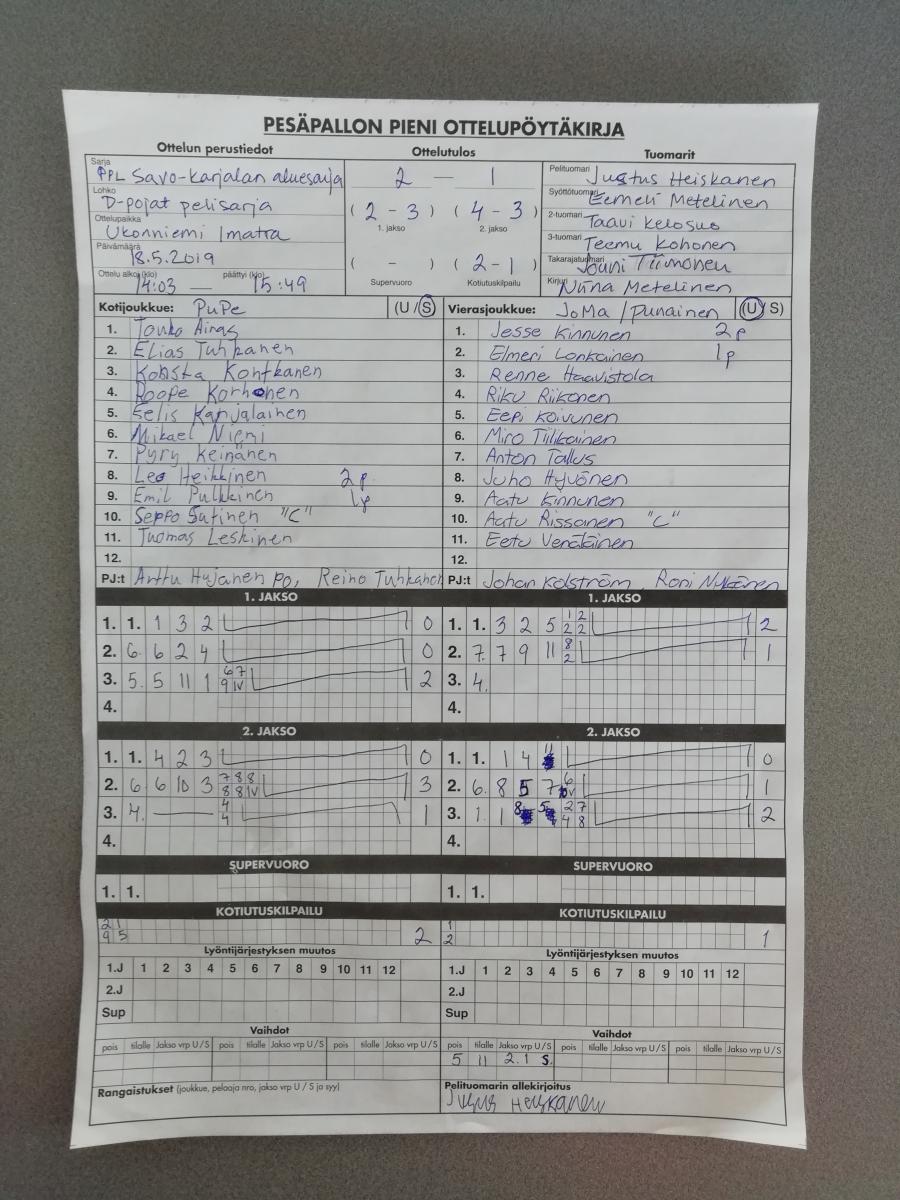 PESÄPALLON PIENI OTTELUPÖYTÄKIRJA
Ottelun perustiedot
Ottelutulos
Tuomarit
Sarja PPL Savo-Karjalan aluesarja
Lohko D-pojat pelisarja
Ottelupaikka Ukonniemi Imatra
Päivämäärä 18.5.2019
Ottelu alkoi (klo) 14:03 — päättyi (klo) 15:49
2 — 1
( 2 - 3 ) ( 4 - 3 )
1. jakso 2. jakso
( - ) ( 2 - 1 )
Supervuoro Kotiutuskilpailu
Pelituomari Justus Heiskanen
Syöttötuomari Eemeli Metelinen
2-tuomari Taavi Kelosuo
3-tuomari Teemu Kohonen
Takarajatuomari Jouni Tiimonen
Kirjuri Niina Metelinen
Kotijoukkue: PuPe (U / S)
1. Touko Airas
2. Elias Tuhkanen
3. Konsta Kontkanen
4. Roope Korhonen
5. Eelis Karjalainen
6. Mikael Niemi
7. Pyry Keinänen
8. Leo Heikkinen 2p
9. Emil Pulkkinen 1p
10. Seppo Sutinen "C"
11. Tuomas Leskinen
12.
PJ:t Arttu Hyjanen PO, Reino Tuhkanen
Vierasjoukkue: JoMa / punainen (U / S)
1. Jesse Kinnunen 2p
2. Elmeri Lonkainen 1p
3. Renne Haavistola
4. Riku Riikonen
5. Eepi Koivunen
6. Miro Tiilikainen
7. Anton Tallus
8. Juho Hyvönen
9. Aatu Kinnunen
10. Aatu Rissanen "C"
11. Eetu Venäläinen
12.
PJ:t Johan Kolström Roni Nykänen
1. JAKSO
1. 1. 1 3 2 0
2. 6. 6 2 4 0
3. 5. 5 11 1 6 7 2
9 IV
4.
2. JAKSO
1. 1. 4 2 3 0
2. 6. 6 10 3 7 8 8 3
8 8 IV
3. 4. — 4 1
4
4.
SUPERVUORO
1. 1.
KOTIUTUSKILPAILU
2 1
9 5 2
Lyöntijärjestyksen muutos
1.J 1 2 3 4 5 6 7 8 9 10 11 12
2.J
Sup
Vaihdot
pois tilalle Jakso vrp U/S pois tilalle Jakso vrp U/S pois tilalle Jakso vrp U/S
Rangaistukset (joukkue, pelaaja nro, jakso vrp U / S ja syy)
1. JAKSO
1. 1. 3 2 5 1 2 2
2 2
2. 7. 7 9 11 8 1
2
3. 4.
4.
2. JAKSO
1. 1. 1 4 11 0
2. 6. 8 5 7 6 1
IV
3. 1. 1 8 5 2 7 2
4 8
4.
SUPERVUORO
1. 1.
KOTIUTUSKILPAILU
1
2 1
Lyöntijärjestyksen muutos
1.J 1 2 3 4 5 6 7 8 9 10 11 12
2.J
Sup
Vaihdot
pois tilalle Jakso vrp U/S pois tilalle Jakso vrp U/S pois tilalle Jakso vrp U/S
5 11 2.1 S.
Pelituomarin allekirjoitus
Justus Heiskanen